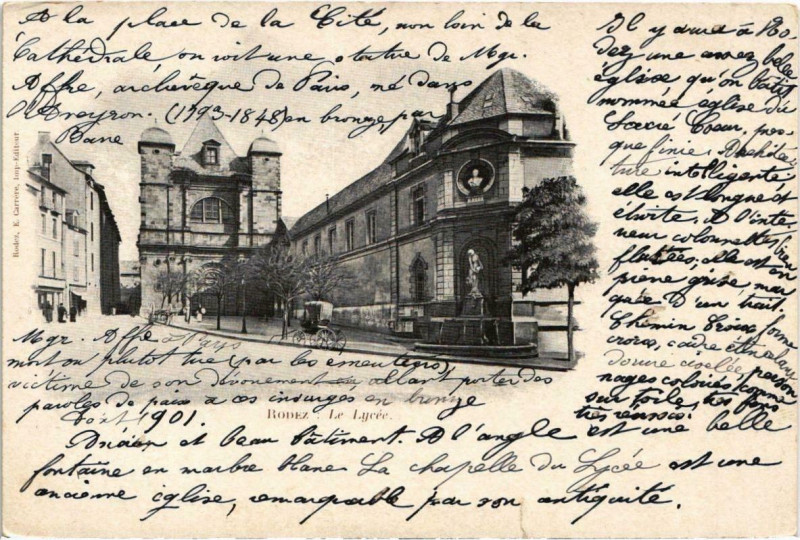 A la place de la Cité, non loin de la
Cathédrale, on voit une statue de Mgr.
Affre, archevêque de Paris, né dans
l'Aveyron. (1793-1848) en bronze par
Barre
Il y aura à Ro-
dez une assez belle
église qu'on bâtit
nommée église du
Sacré Coeur, pres-
que finie. D'architec
ture intelligente
elle est longue et
étroite. A l'inté-
rieur colonnettes bien
fluttées, elle est en
pierre grise, mar
quée d'un trait.
Chemin Croix forme
croix, cadre
dorure ciselée, person
nages coloriés, comme
sur toile, très fins
très réussis.
Rodez, E. Carrère, Imp.-Editeur
Mgr. Affre
mort ou plutôt tué (par les émeutiers)
victime de son dévouement allant porter des
paroles de paix a ces insurgés en bronze
RODEZ. Le Lycée.
Août 1901.
Ancien et beau bâtiment. A l'angle est une belle
fontaine en marbre blanc La chapelle du Lycée est une
ancienne église, remarquable par son antiquité.